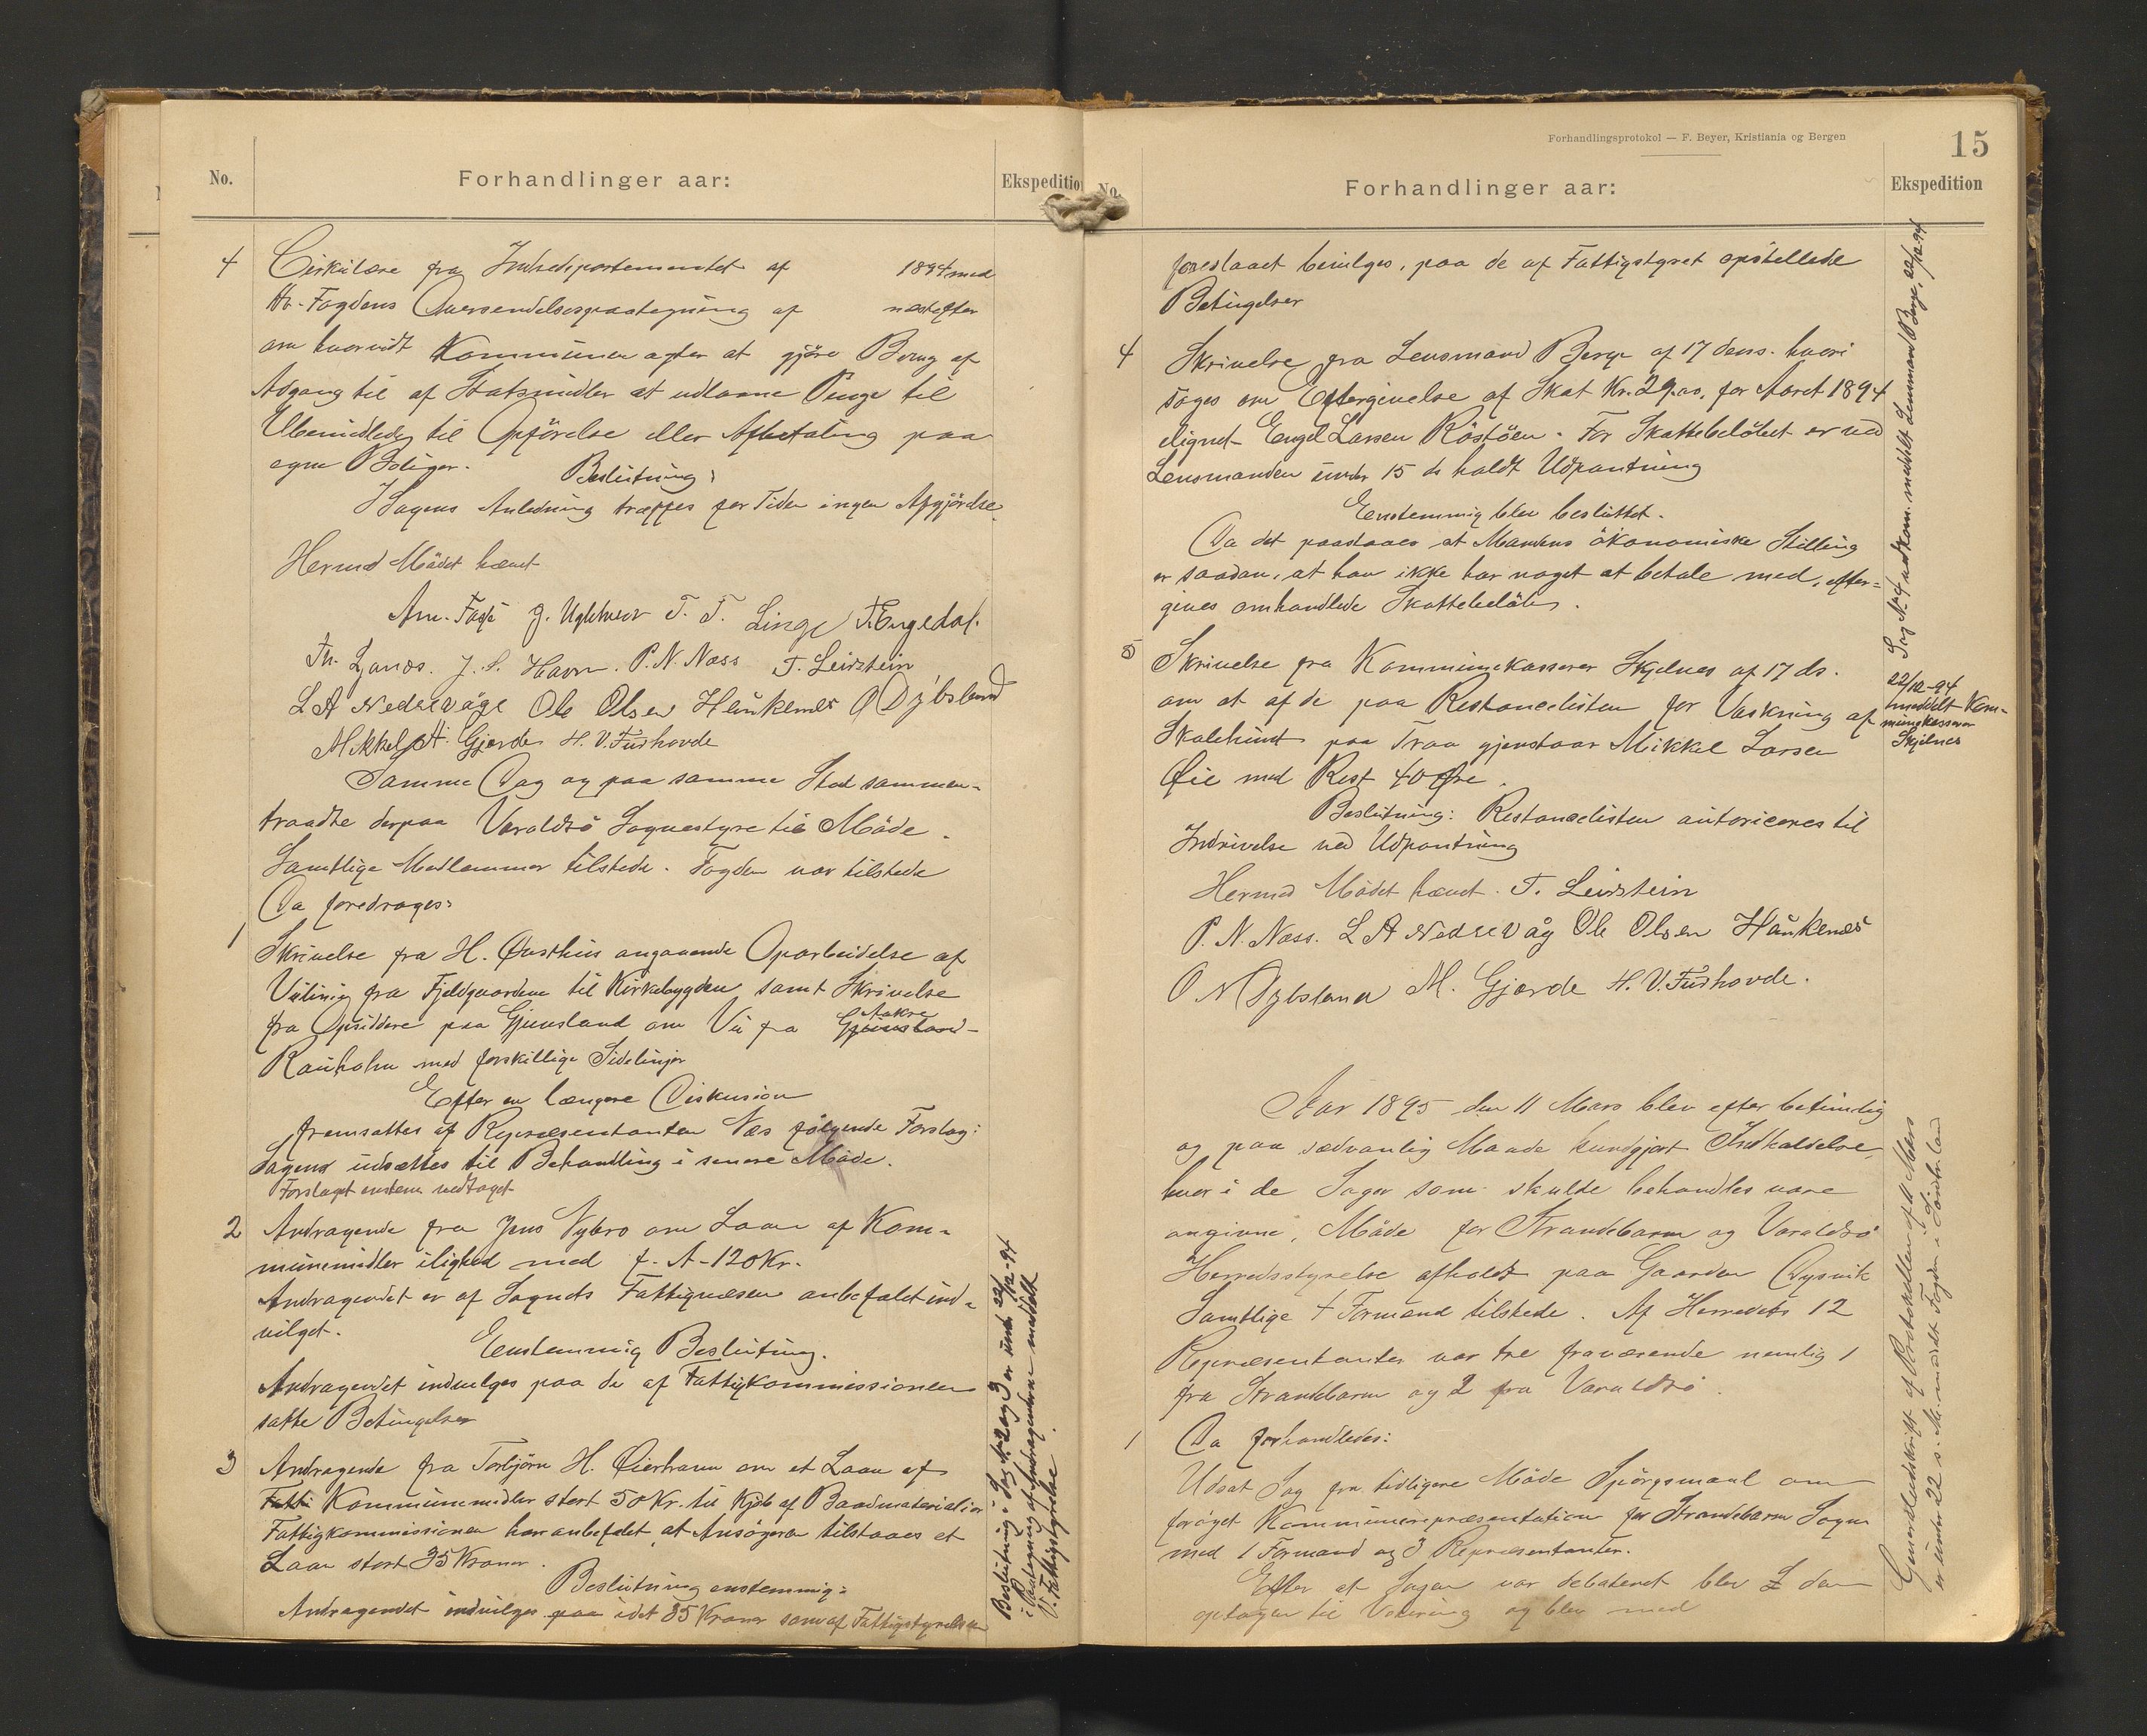 No.
Forhandlinger aar:
Ekspedition
4
Cirkulære fra Indredepartementet af 1894 med
Hr. Fogdens Oversendelsespaategning af næstefter
om hvorvidt Kommunen agter at gjöre Brug af
Adgang til af Statsmidler at udlaane Penge til
Ubemidlede til Opförelse eller Afbetaling paa
egne Boliger.
Beslutning:
I Sagens Anledning træffes for Tiden ingen Afgjörelse.
Hermed Mödet hævet
T. T. Linge T. Engedal.
J. S. Havn. P. N. Næss T. Leirstein
L A Nedrevåge Ole Olsen Haukenæs O Dybsland
Mikkel A. Gjerde H. V. Furhovde
Samme Dag og paa samme Sted sammen-
traadte derpaa Varaldsö Sognestyre til Möde.
Samtlige Medlemmer tilstede. Fogden var tilstede
Da foredrages:
1
Skrivelse fra H. Øvsthus angaaende Oparbeidelse af
Veilinie fra Fjeldgaardene til Kirkebygden samt Skrivelse
fra Opsiddere paa Gjuvsland om Vei fra Gjuvsland- Aakre
Rauholm med forskillige Sidelinjer
Efter en længere Diskusion
fremsattes af Repræsentanten Næs følgende Forslag:
Sagen udsættes til Behandling i senere Möde.
Forslaget enstem. vedtaget
2
Andragende fra Jens Nybro om Laan af Kom-
munemidler ilighed med f. A - 120 Kr.
Andragendet er af Sognets Fattigvæsen anbefalet ind-
vilget.
Eenstemmig Beslutning.
Andragendet indvilges paa de af Fattigkommissionen
satte Betingelser
3
Andragende fra Torbjörn H. Øierhavn om et Laan af
Fatti Kommunemidler stort 50 Kr. til Kjöb af Baadmaterialier
Fattigkommissionen har anbefalet at Ansögeren tilstaaes et
Laan stort 35 Kroner.
Beslutning enstemmig:
Andragendet indvilges paa idet 35 Kroner som af Fattigstyrelsen
Beslutning i Sag No 2 og 3 er und. 22/12-94
i Paategning af Andragenderne meddelt
V. Fattigstyrelse.
Forhandlingsprotokol — F. Beyer, Kristiania og Bergen
15
No.
Forhandlinger aar:
Ekspedition
foreslaaet bevilges, paa de af Fattigstyret opstellede
Betingelser
4
Skrivelse fra Lensmand Berge af 17 dens. hvori
söges om Eftergivelse af Skat Kr. 29.00, for Aaret 1894
elignet Engel Larsen Röstöen. For Skattebelöbet er ved
Lensmanden under 15 ds holdt Udpantning
Eenstemmig blev besluttet.
Da det paastaaes at Mandens ökonomiske Stilling
er saadan, at han ikke har noget at betale med, efter-
gives omhandlede Skattebelöb.
Sag No 4 udkom. meddelt Lensmand Berge, 22/12 94
5
Skrivelse fra Kommunekasserer Skjelnes af 17 ds.
om at af de paa Restancelisten for Vaskning af
Skolehuset paa Traa gjenstaar Mikkel Larsen
Øie med Rest 40 Øre.
Beslutning: Restancelisten autoriceres til
Inddrivelse ved Udpantning
22/12-94
meddelt Kom-
munekasserer
Skjelnes
Hermed Mödet hævet. T. Leirstein
P. N. Næss. L A Nedrevåg Ole Olsen Haukenæs
O N Dybsland M. Gjerde H. V. Furhovde.
Aar 1895 den 11 Mars blev efter betimelig
og paa sædvanlig Maade kundgjort Indkaldelse,
hvor i de Sager som skulde behandles vare
angivne, Möde for Strandebarm og Varaldsö
Herredsstyrelse afholdt paa Gaarden Dysvik
Samtlige 4 Formænd tilstede. Af Herredets 12
Repræsentanter var tre fraværende nemlig 1
fra Strandebarm og 2 fra Varaldsö.
1
Da forhandledes:
Udsat Sag fra tidligere Möde Spörgsmaal om
foröget Kommunerepræsentation for Strandebarm Sogn
med 1 Formand og 3 Repræsentanter.
Efter at Sagen var debateret blev den
optagen til Votering og blev med
Generheludskrift af Protokollen af 11 Mars
er under 22 s. M. meddelt Fogden i Söndhorland